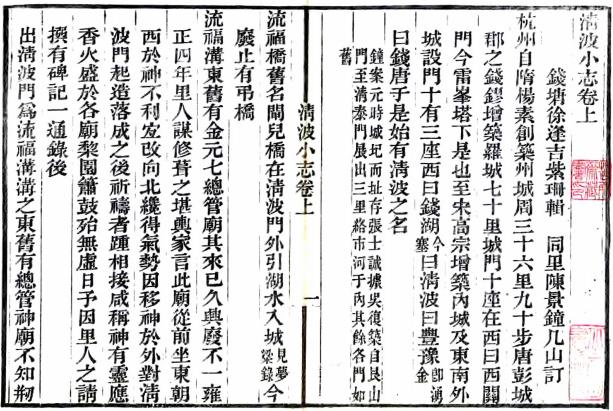 清波小志卷上
錢塘徐逢吉紫珊輯　同里陳景鐘几山訂
杭州自隋楊素創築州城周三十六里九十步唐彭城
郡之錢鏐增築羅城七十里城門十座在西曰西關
門今雷峯塔下是也宋高宗增築內城及東南外
城設門十有三座西曰錢湖今塞曰清波曰豐豫即湧金
曰錢唐于是始有清波之名
鐘案元時城圮而址存張士誠據吳復築自艮山
門至清泰門展出三里絡市河于內其餘各門如
舊
清波小志卷上
一
流福橋舊名鬧兒橋在清波門外引湖水入城見夢粱錄今
廢止有弔橋
流福溝東舊有金元七總管廟其來已久興廢不一雍
正四年里人謀修葺之堪輿家言此廟從前坐東朝
西於神不利宜改向北纔得氣勢因移神於外對清
波門起造落成之後祈禱者踵相接咸稱神有靈應
香火盛於各廟黎園簫鼓殆無虛日予因里人之請
撰有碑記一通錄後
出清波門爲流福溝溝之東舊有總管神廟不知刱